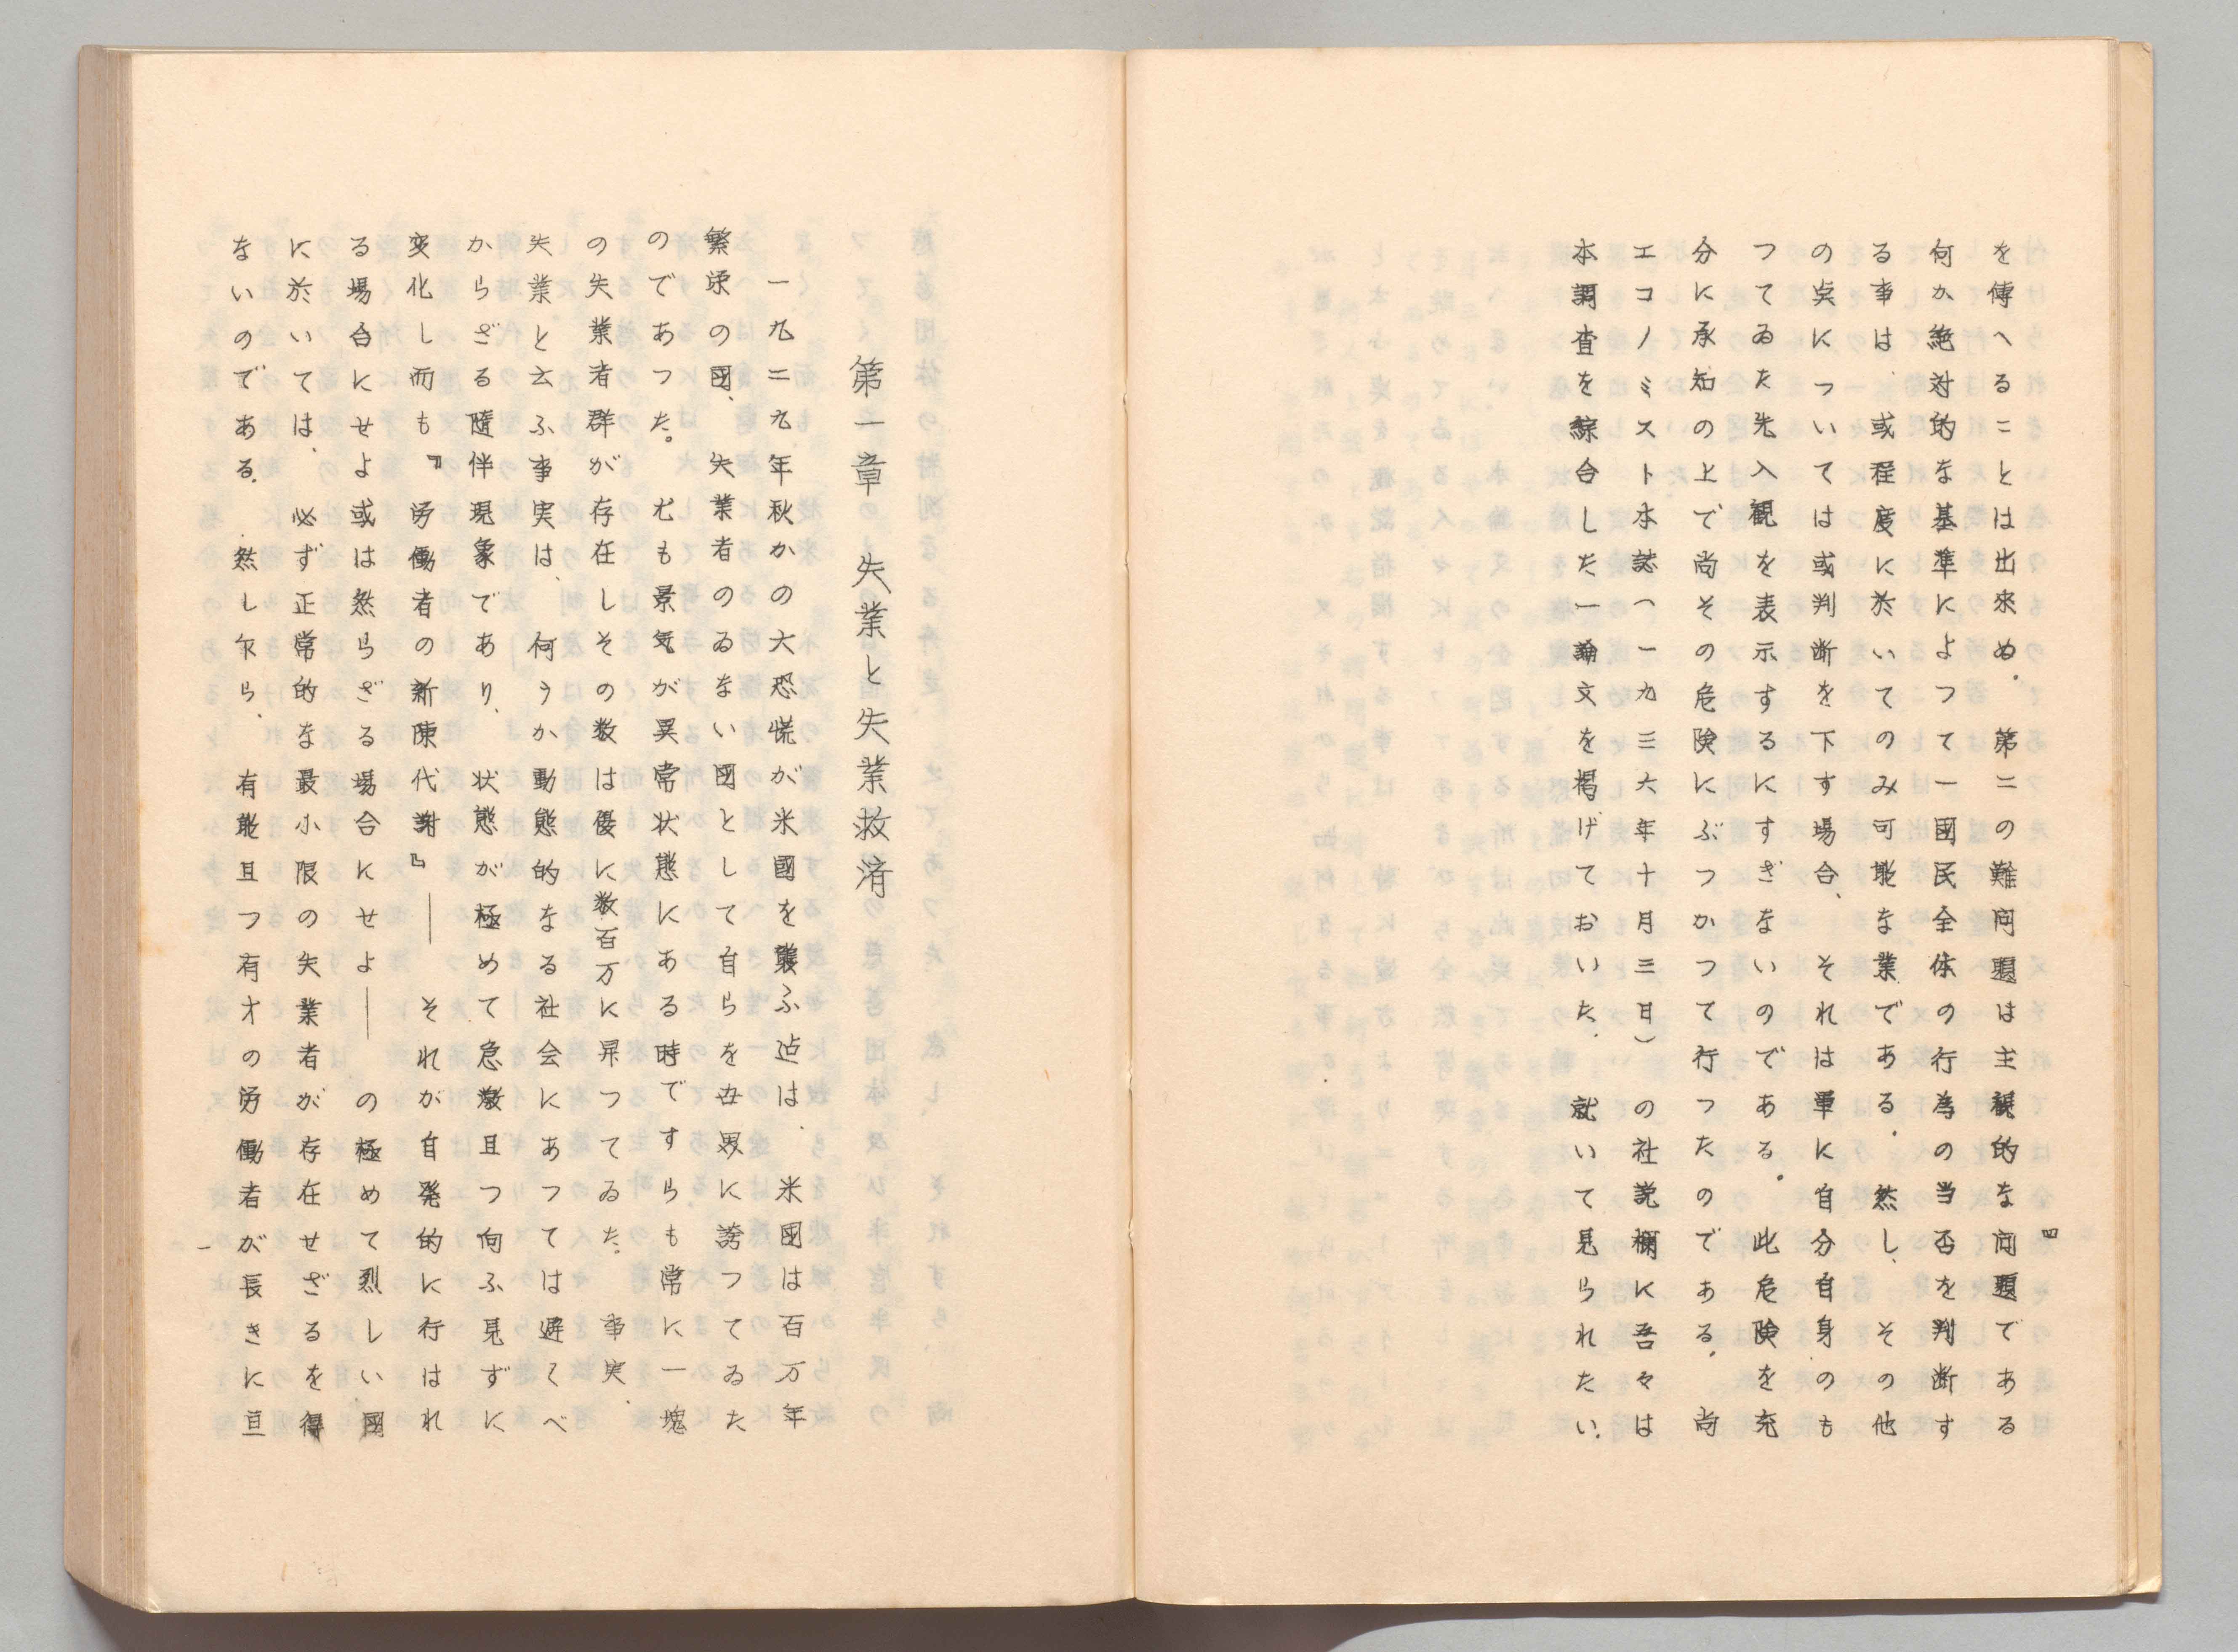 を傳へることは出來ぬ。第二の難问題は主観的な问題である
何か絶対的な基準によつて一國民全体の行為の当否を判断す
る事は、或程度に於いてのみ可能な業である。然し、その他
の点については或判断を下す場合、それは單に自分自身のも
つてゐた先入観を表示するにすぎないのである。此危険を充
分に承知の上で尚その危険にぶつかつて行つたのである。尚
エコノミスト本誌(一九三六年十月三日)の社説欄に吾々は
本調査を綜合した一論文を掲げておいた。就いて見られたい。
四
第一章 失業と失業救済
一九二九年秋かの大恐慌が米國を襲ふ迠は、米國は百万年
繁栄の國、失業者のゐない國として自らを世界に誇つてゐた
のであつた。尤も景気が異常状態にある時ですらも常に一塊
の失業者群が存在しその数は優に数百万に昇つてゐた。事実、
失業と云ふ事実は、何うか動態的なる社会にあつては避くべ
からざる隨伴現象であり、状態が極めて急激且つ向ふ見ずに
変化し而も『労働者の新陳代謝』――それが自発的に行はれ
る場合にせよ或は然らざる場合にせよ――の極めて烈しい國
に於いては、必ず正常的な最小限の失業者が存在せざるを得
ないのである。然し乍ら、有能且つ有才の労働者が長きに亘
一